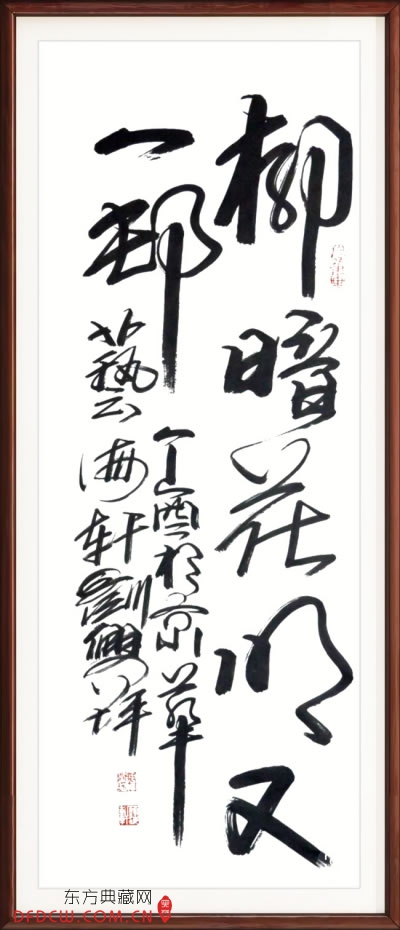 柳暗花明又
一邨
丁酉於京華
藝海軒劉興祥
东方典藏网
DFDCW.COM.CN